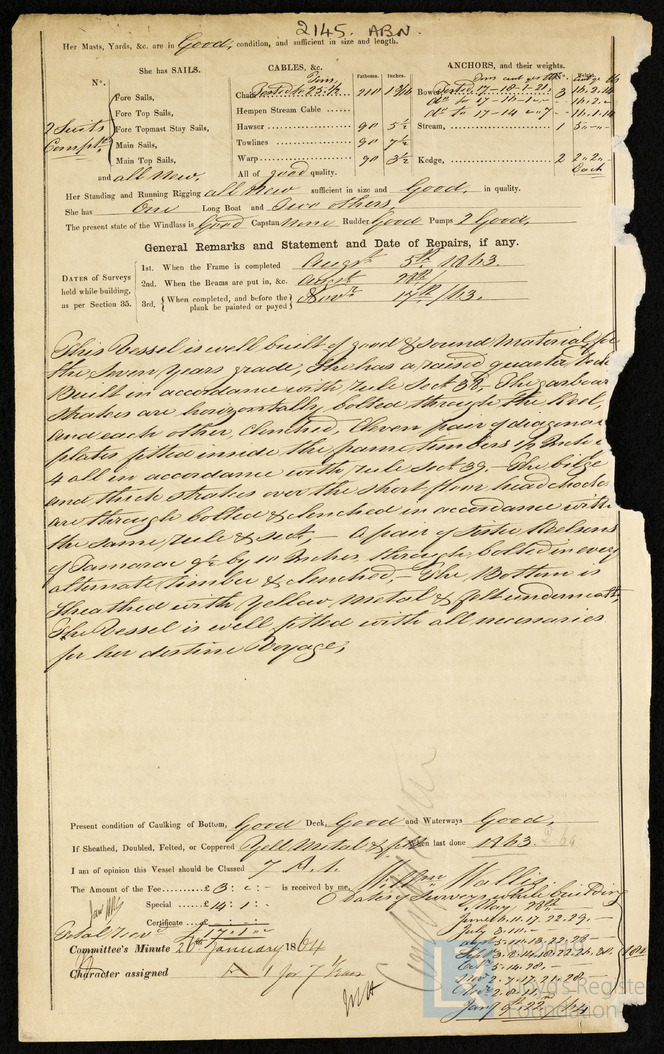 2145. ABN.
Her Masts, Yards, &c. are in Good, condition, and sufficient in size and length.
She has SAILS.
CABLES, &c.
Fathoms.
Inches.
ANCHORS, and their weights.
No.
2 Suits
Compt.
Fore Sails,
Fore Top Sails,
Fore Topmast Stay Sails,
Main Sails,
Main Top Sails,
and all New.
Tons
Chain Tested to 25 ½ 210 1 3/16
Hempen Stream Cable
Hawser 90 5½
Towlines 90 7½
Warp 90 3½
All of good quality.
Bowers, Tested 17-18-1-21. 3 16.2.14
do. to 17-16-1
do. to 17-14 16.1.14
Stream, 1
Kedge, 2
Her Standing and Running Rigging all New sufficient in size and Good, in quality.
She has One Long Boat and Two others
The present state of the Windlass is Good Capstan None Rudder Good Pumps 2 Good,
General Remarks and Statement and Date of Repairs, if any.
DATES of Surveys held while building, as per Section 35.
1st. When the Frame is completed Augst 5th 1863.
2nd. When the Beams are put in, &c. Augst 28th
3rd. When completed, and before the plank be painted or payed Novr 17th /63.
This Vessel is well built of good & sound Material for
the Seven Years grade, She has a raised quarter deck
Built in accordance with rule Sect 38- The garboard
strakes are horizontally bolted through the Keel,
and each other, clenched, Eleven pair of diagonal
plates fitted inside the frame timbers
4 all in accordance with rule Sect 39,- The bilge
and thick strakes over the short floor heads
are through bolted & clenched in accordance with
the same, rule & sect,- A pair of Sister Keelsons
of Tamarac by 10 Inches, through bolted in every
alternate timber & clenched,- The Bottom is
Sheathed with Yellow Metal & felt underneath,
The Vessel is well fitted with all necessaries
for her destine Voyage,
Present condition of Caulking of Bottom, Good Deck, Good and Waterways Good,
If Sheathed, Doubled, Felted, or Coppered Yell Metal & felt When last done 1863.
I am of opinion this Vessel should be Classed 7 A.1.
The Amount of the Fee £ 3 : " : - is received by me, Wm Wallis
Special £ 14 : 1 : -
Certificate
Total £ 17 . 1 " -
Dates of Surveys while building
May 28th
June 4. 11. 17. 22. 29. -
July 3. 10. -
Augt 5. 10. 13. 22. 28 -
Octr 5. 14. 28, -
Novr 2. 7. 17. 21. 28, -
Jany 9th 22nd /64
Committee's Minute 26th January 1864
Character assigned A 1 for 7 Years
Lloyd's Register
Foundation